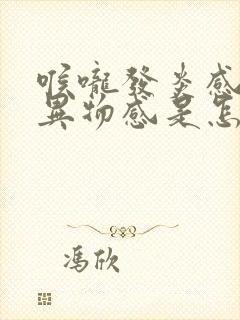 喉嚨發炎感
異物感是怎
馮欣